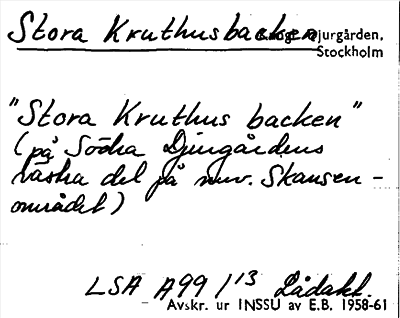 Stora Kruthusbacken
Kungl. Djurgården,
Stockholm
"Stora Kruthus backen"
(på Södra Djurgårdens
västra del på nuv. Skansen-
området)
LSA A99/13 Lådakt.
Avskr. ur INSSU av E.B. 1958-61